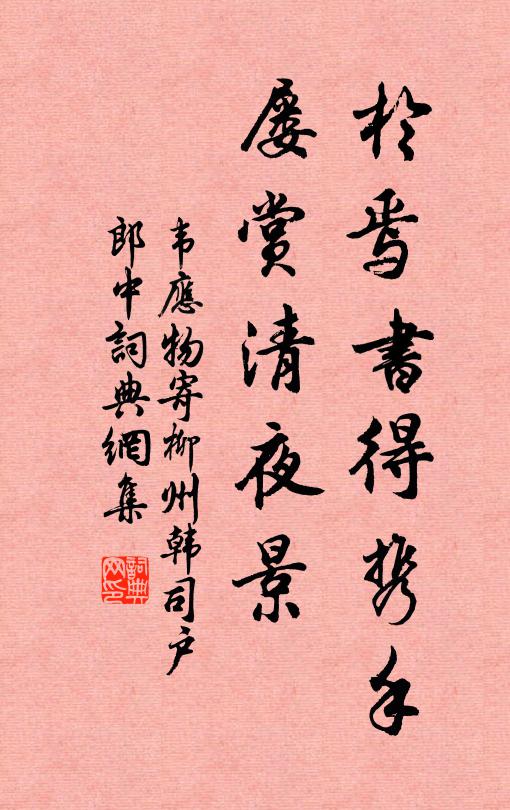 於焉書得携手
屡賞清夜景
韦應物寄柳州韓司户
郎中詞典網集
詞典
网印